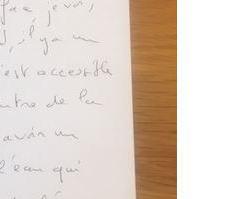 je vois,
, il y a un
'est accessible
ntre de la
avoir un
l'eau qui